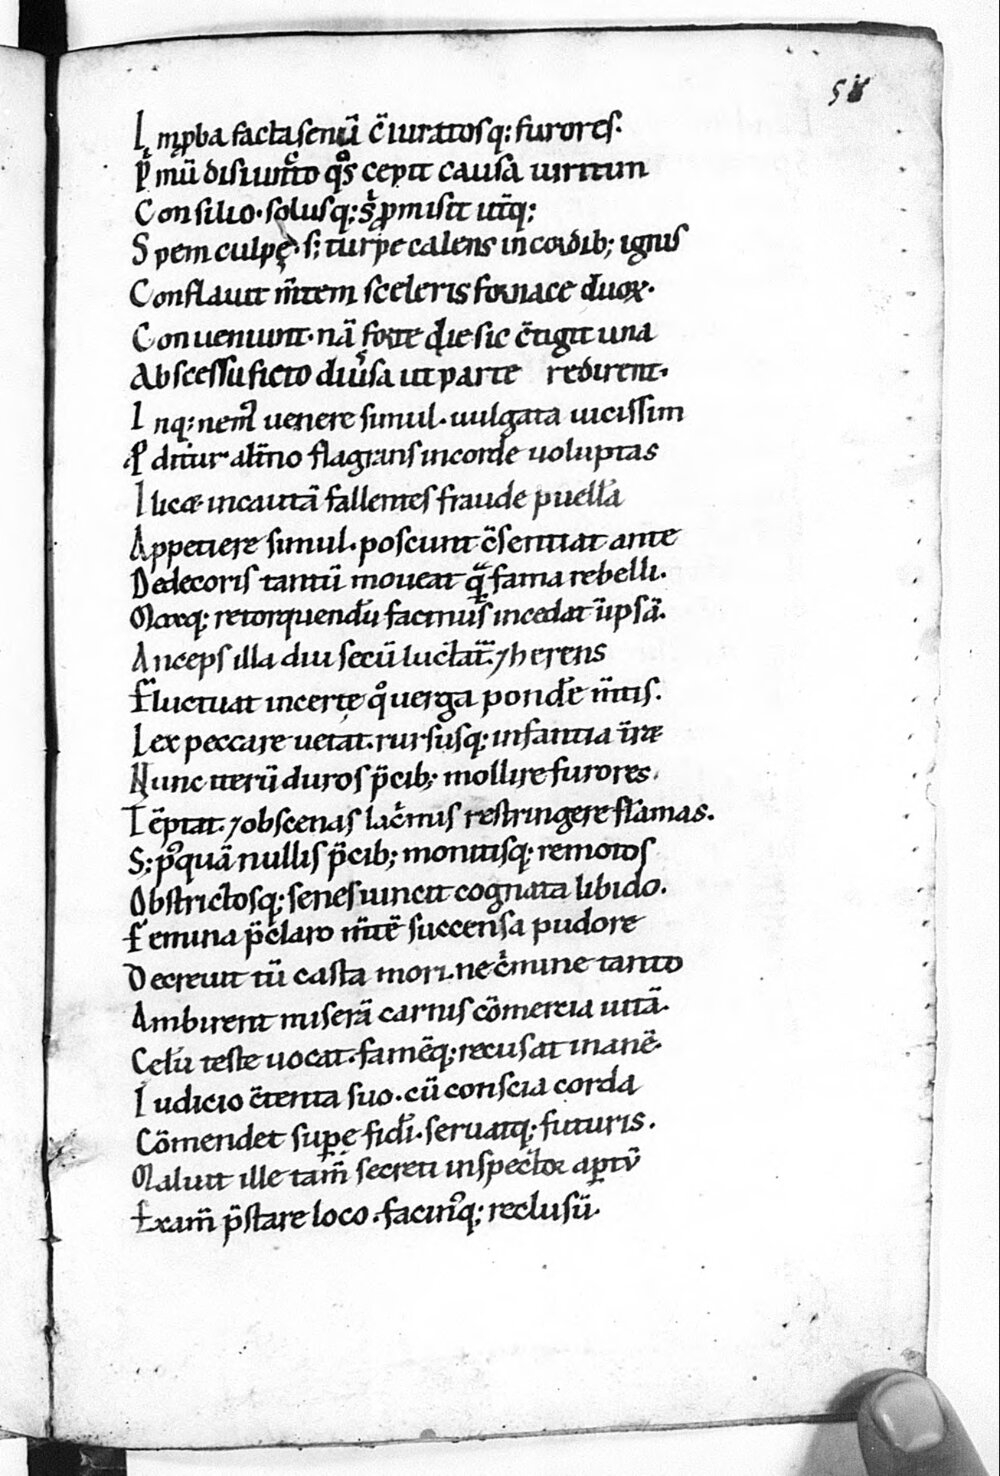 58
Improba facta senū c̄iuratosq; furores.
P̄mū disiūcto q°s cepit causa uiritim
Consilio. solusq; s͛ p̱misit ut̄q;
Spem culpę. s; turpe calens in cordib; ignis
Conflauit m̄tem sceleris fornace duoꝝ.
Conueniunt. nā forte die sic c̄tigit una
Abscessu ficto diu͛sa ut parte redirent.
Inq; nem᷒ uenere simul. uulgata uicissim
Pditur alt̄no flagrans in corde uoluptas
Ilicæ incautā fallentes fraude puellā
Appetiere simul. poscunt c̄sentiat ante
Dedecoris tantū moueat q̄ꝫ fama rebelli.
Noxq; retorquendū facinus incedat īipsā.
Anceps illa diu secū luctat᷑. ⁊ herens
Fluctuat incerte q° uerga pond͛e m̄tis.
Lex peccare uetat. rursusq; infantia īre
Nunc iterū duros p̄cib; mollire furores.
Tēptat. ⁊ obscenas lac͛mis restringere flāmas.
S; p°quā nullis p̄cib; monitisq; remotos
Obstrictosq; senes uincit cognata libido.
Femina p̄claro m̄tē succensa pudore
Decreuit tū casta mori. ne c͛mine tanto
Ambirent miserā carnis cōmercia uitā.
Celū teste uocat. famēq; recusat inanē.
Iudicio c̄tenta suo. cū conscia corda
Cōmendet supęfidi. seruatq; futuris.
Maluit ille tam̄ secreti inspector aptū
Exam̄ p̄stare loco. facin°q; reclusū.